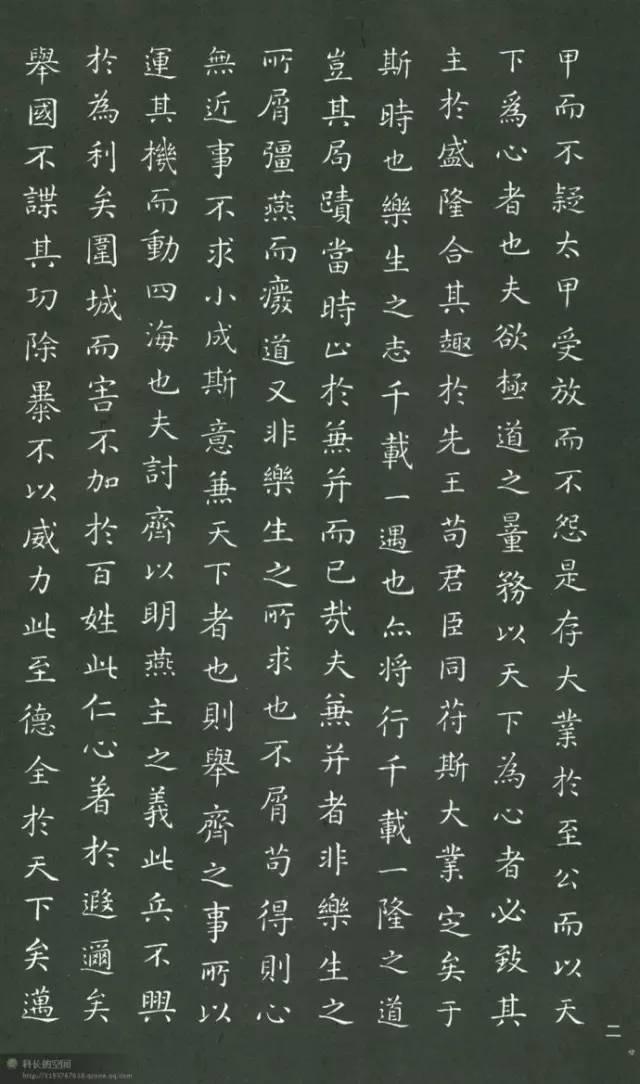 甲而不疑太甲受放而不怨是存大業於至公而以天
下爲心者也夫欲極道之量務以天下為心者必致其
主於盛隆合其趣於先王苟君臣同苻斯大業定矣于
斯時也樂生之志千載一遇也亦将行千載一隆之道
豈其局蹟當時止於兼并而已哉夫兼并者非樂生之
所屑彊燕而癈道又非樂生之所求也不屑苟得則心
無近事不求小成斯意兼天下者也則舉齊之事所以
運其機而動四海也夫討齊以明燕主之義此兵不興
於為利矣圍城而害不加於百姓此仁心著於遐邇矣
舉國不謀其功除暴不以威力此至德全於天下矣邁
二
科长的空间
http://1193767618.qzone.qq.com